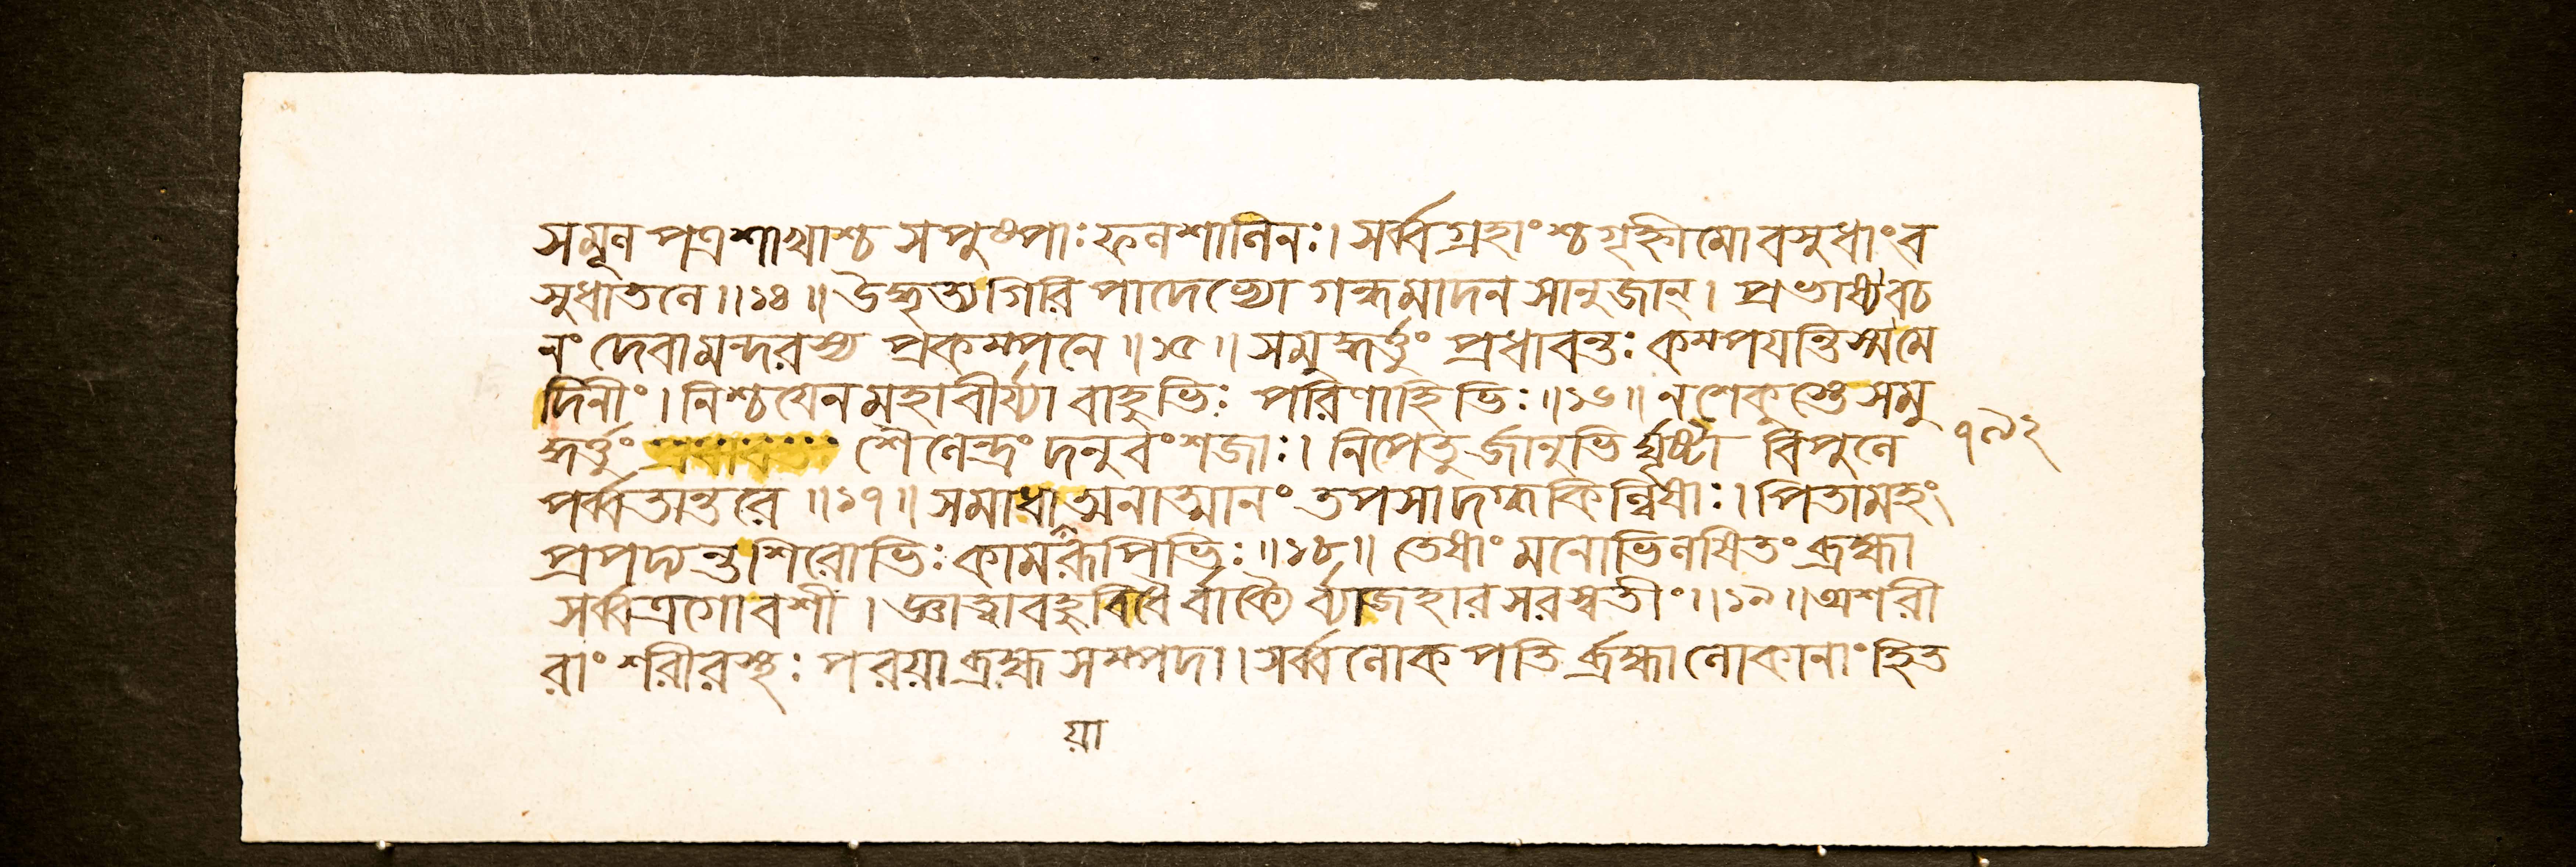 সমূলপত্রশাখাশ্চ সপুষ্পাঃ ফলশালিনঃ। সর্ব্বগ্রহাংশ্চগৃহ্নীমো বসুধাং ব
সুধাতলে॥১৪॥ উদ্ধৃত্যগিরিপাদেভ্যো গন্ধমাদনসানুজান্। প্রভাষ্যবচ
নং দেবামন্দরস্য প্রকম্পনে॥১৫॥ সমুদ্ধর্ত্তুং প্রধাবন্তঃ কম্পযন্তিস্মমে
দিনীং। নিশ্চযেনমহাবীর্য্যা বাহুভিঃ পরিণাহিভিঃ॥১৬॥ নশেকুস্তেসমু
দ্ধর্ত্তুং শৈলেন্দ্রং দনুবংশজাঃ। নিপেতুর্জানুভির্ঘৃষ্টা বিপুলে ৭৯২
পর্ব্বতান্তরে॥১৭॥ সমাধাত্মনাত্মানং তপসাদগ্ধকিল্বিষাঃ। পিতামহং
প্রপদ্যন্তশিরোভিঃ কামরূপিভিঃ॥১৮॥ তেষাং মনোভিলষিতং ব্রহ্মা
সর্ব্বত্রগোবশী। জ্ঞাত্বাবহুবিধৈর্বাক্যৈর্ব্যাজহারসরস্বতীং॥১৯॥ অশরী
রাং শরীরস্থঃ পরয়াব্রহ্মসম্পদা। সর্ব্বলোকপতির্ব্রহ্মা লোকানাংহিত
য়া